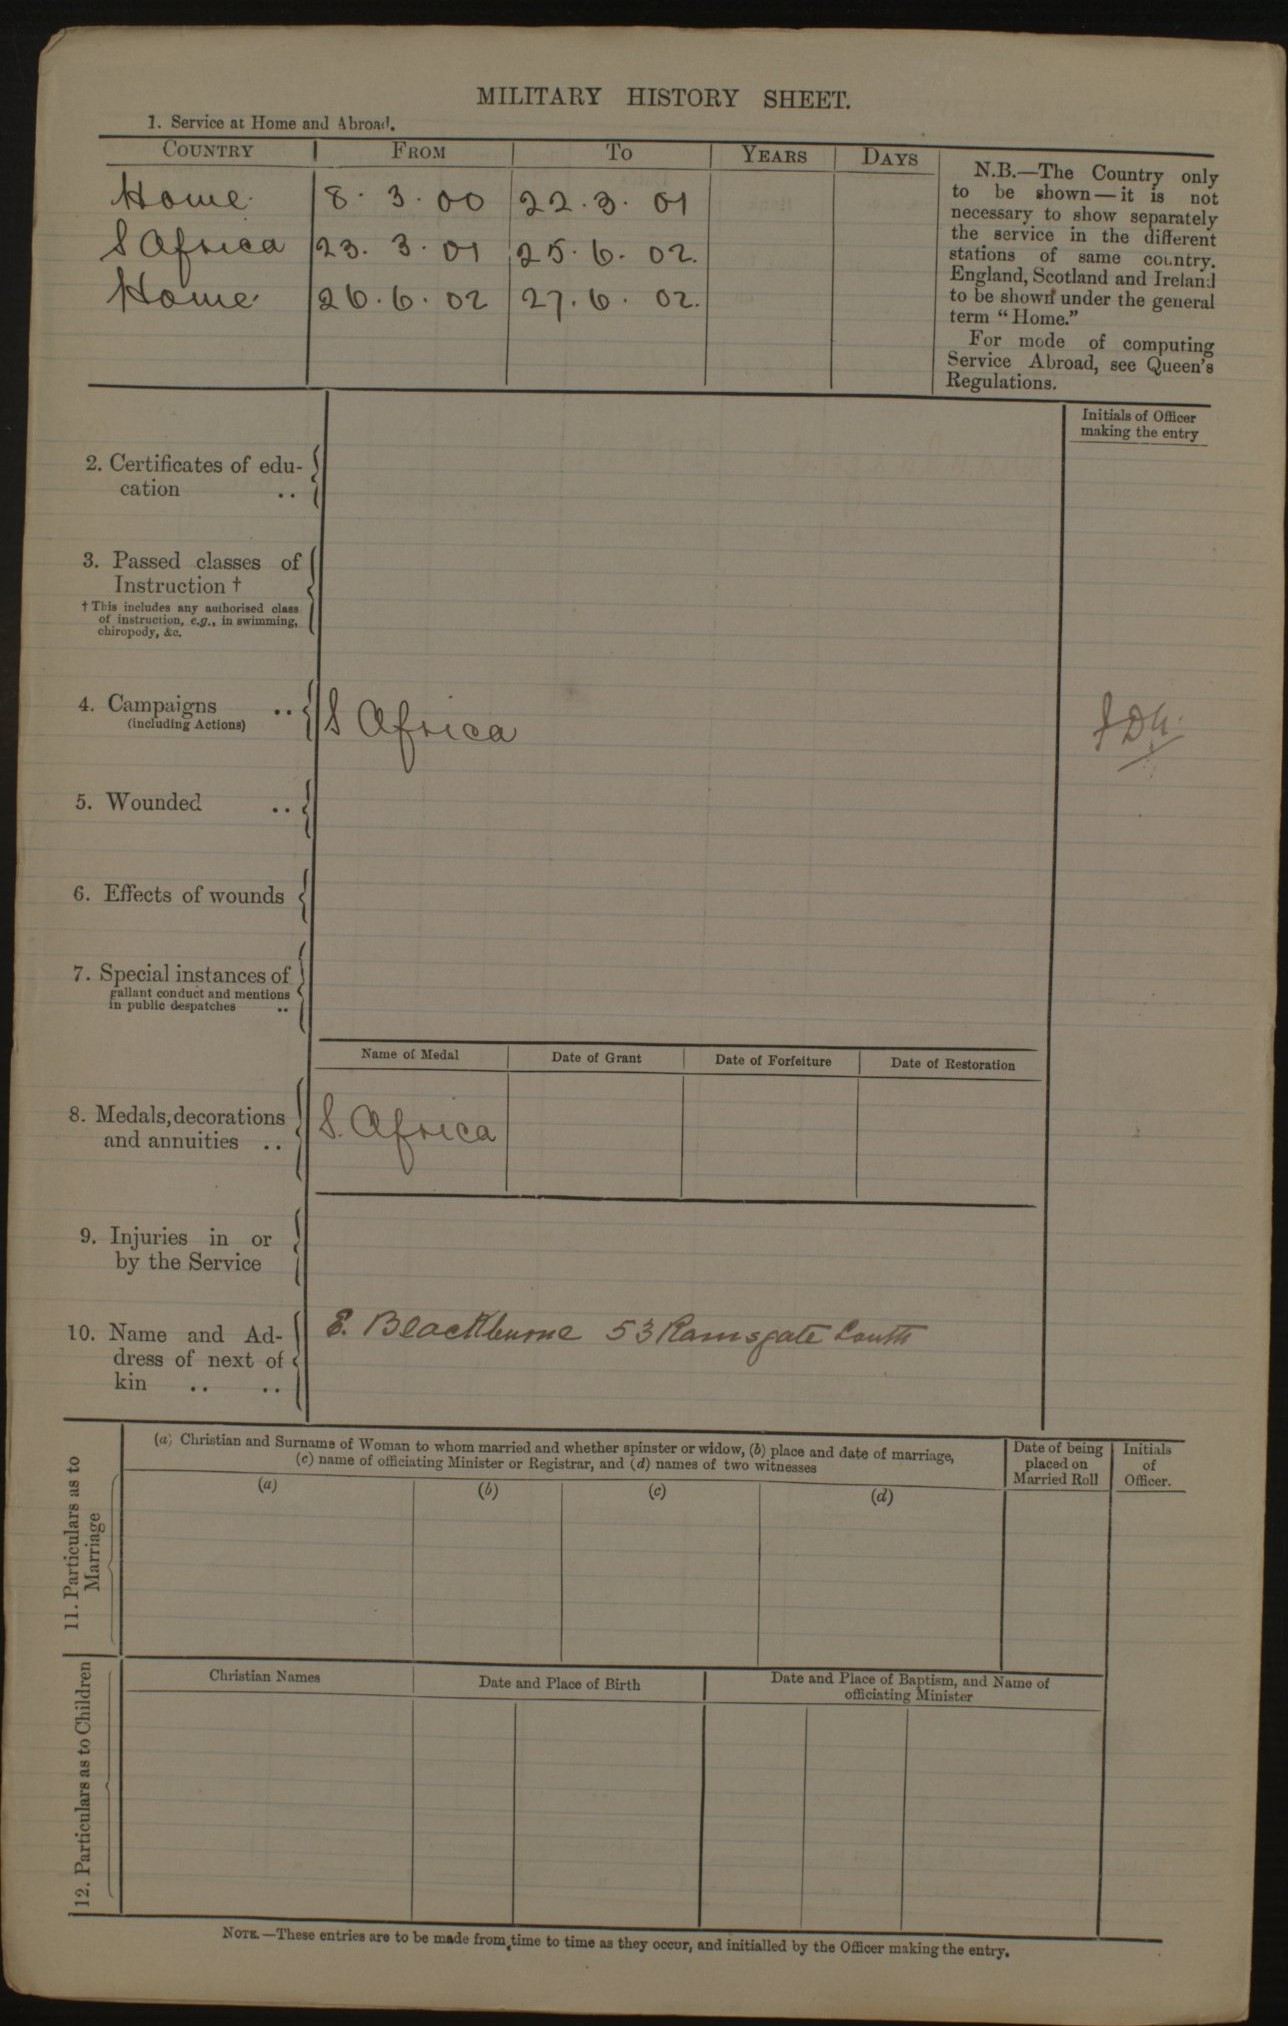 MILITARY HISTORY SHEET.
1. Service at Home and Abroad.
COUNTRY FROM TO YEARS DAYS
Home 8. 3. 00 22. 3. 01
S Africa 23. 3. 01 25. 6. 02.
Home 26. 6. 02 27. 6. 02.
N.B.—The Country only
to be shown—it is not
necessary to show separately
the service in the different
stations of same country.
England, Scotland and Ireland
to be shown under the general
term "Home."
For mode of computing
Service Abroad, see Queen's
Regulations.
Initials of Officer
making the entry
2. Certificates of edu-
cation ..
3. Passed classes of
Instruction †
† This includes any authorised class
of instruction, e.g., in swimming,
chiropody, &c.
4. Campaigns ..
(including Actions)
S Africa
5. Wounded ..
6. Effects of wounds
7. Special instances of
gallant conduct and mentions
in public despatches ..
Name of Medal Date of Grant Date of Forfeiture Date of Restoration
8. Medals, decorations
and annuities ..
S. Africa
9. Injuries in or
by the Service
10. Name and Ad-
dress of next of
kin .. ..
E. Blackburne 53 Ramsgate
11. Particulars as to
Marriage
(a) Christian and Surname of Woman to whom married and whether spinster or widow, (b) place and date of marriage,
(c) name of officiating Minister or Registrar, and (d) names of two witnesses
(a) (b) (c) (d)
Date of being
placed on
Married Roll
Initials
of
Officer.
12. Particulars as to Children
Christian Names Date and Place of Birth
Date and Place of Baptism, and Name of
officiating Minister
NOTE.—These entries are to be made from time to time as they occur, and initialled by the Officer making the entry.